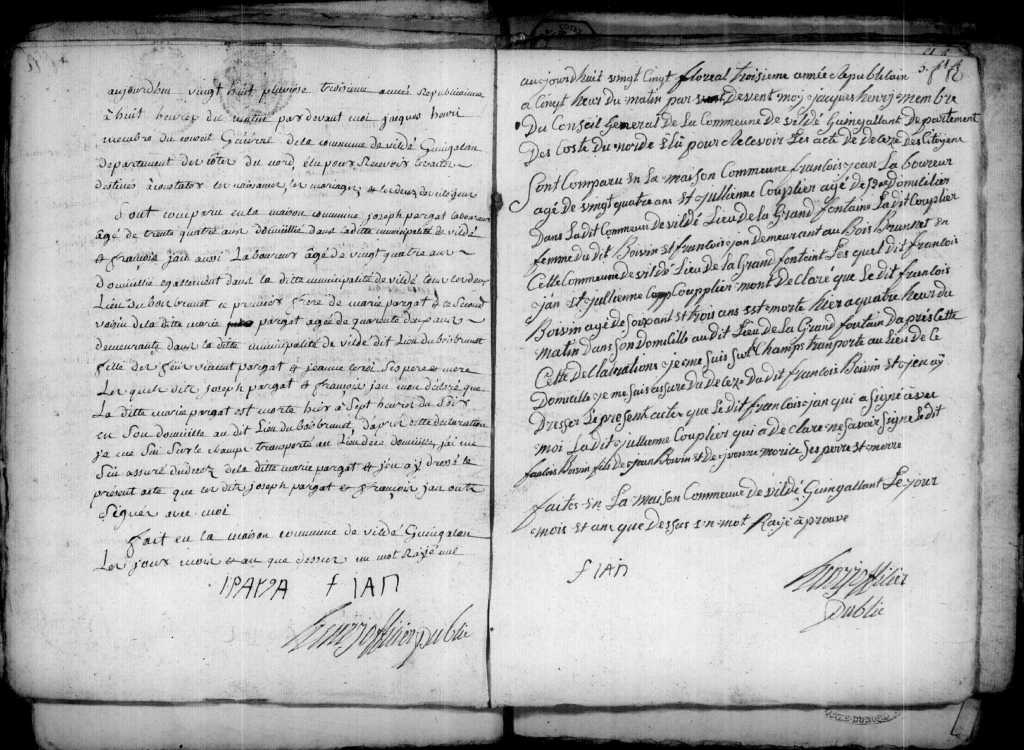 aujourdhui vingt huit pluviose troisieme année Republicaine
à huit heures du matin par devant moi jaques henri
membre du conseil Général de la commune de vildé Guingalan
departement des côtes du nord, élu pour Recevoir les actes
destinés à constater les naissances, les mariages & les decez des citoyens
Sont comparu en la maison commune joseph pargat laboureur
âgé de trente quatre ans domicillié dans la ditte municipalité de vildé
& françois jan aussi Laboureur âgé de vingt quatre ans
domicillié egallement dans la ditte municipalité de vildé
Lieu du bois brunet ce premier frere de marie pargat & ce second
voisin de la ditte marie pargat agée de quarente ans
demeurante dans la ditte municipalité de vildé dit Lieu du bois brunet
fille de feus vincent pargat & jeanne ses pere & mere
Les quels dits joseph pargat & françois jan mont déclaré que
La ditte marie pargat est morte hier à Sept heures du Soir
en Son domicille au dit Lieu du bois brunet, dapres cette déclaration
je me Suis Sur le champs transporté au Lieu de ce domicille, jai me
Suis assuré du decez de la ditte marie pargat & jen ay dressé le
présent acte que les dits joseph pargat & françois jan onts
Signés avec moi
fait en la maison commune de vildé Guingalan
Les jours mois et an que dessus un mot Rayé nul
IPAR
F IAN
henry officier public
aujourdhuit vingt cinqt floreal troisieme année Republicain
a cinqt heur du matin par devent moy jacques henry membre
Du Conseil General de La Commeune de vildé Guingallant Departement
Des Coste du nord Elü pour Recevoir Les acte de deceze Des Citoyens
Sont Comparu en La maison Commeune francois jean La boureur
agé de vingt quatre ans et jullienne Couplier agé de Domicilies
Dans La dit Commeun de vildé Lieu de la Grand fontaine La dit Couplier
femme du dit Boivin et francois jan demeurant au Bois Brunnet en
Cette Commeune de vildé Lieu de La Grand fonteint Les quel dit francois
jan et jullienne Coupplier mont de Claré que Le dit francois
Boivin agé de Soixant et trois ans est morte hier a quatre heur du
matin Dans son Domicille au dit Lieu de La Grand fontain Dapres Cette
Cette de Claration je me suis sur le Champs transporté au Lieu de Ce
Domicille je me suis assuré du deceze du dit francois Boivin et jen aÿ
Dresser Le present acte que Le dit francois jan qui a signé avec
moi La dit jullienne Couplier qui a de Claré ne savoir signé Le dit
francois Boivin fils de jean Boivin et de yvonne morice ses paire et merre
faites en La maison Commeune de vildé Guingallant Le jour
mois et an que Dessus un mot Rayé aprouve
F IAN
henry officier
public